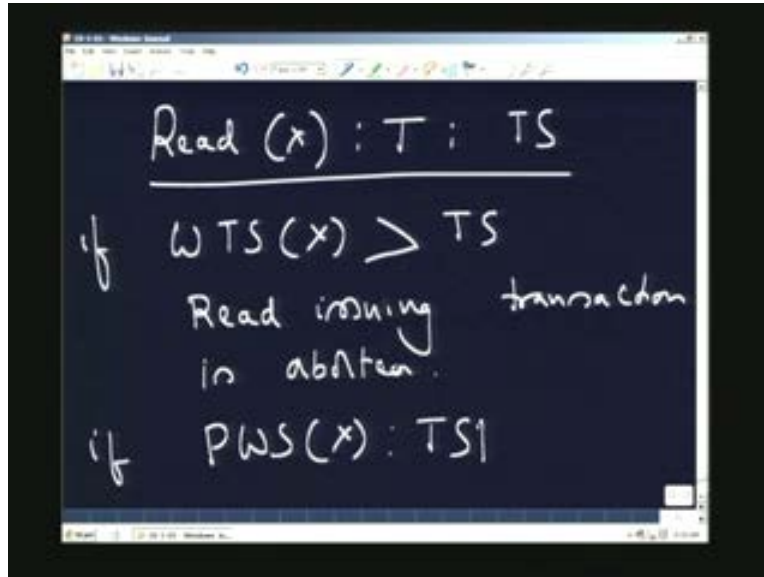 Read (x) : T : TS
if WTS(x) > TS
Read issuing transaction
is aborted.
if PWS(x) : TS1